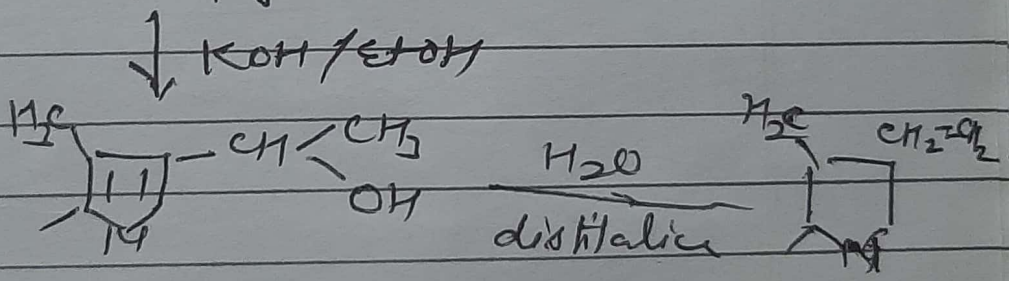 KOH / EtOH
H3C
CH
CH3
OH
H2O
distillation
H3C
CH2=CH2